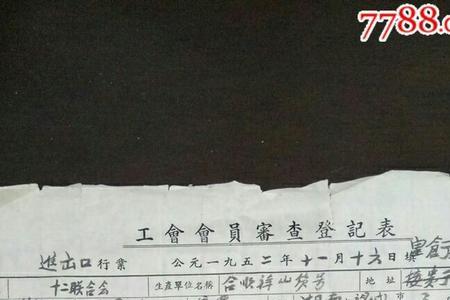 7788.c
工會會員審查登記表
進出口行業 公元一九五二年十一月十六日填
十二联合会 生產單位名稱 合順祥山货号 地址